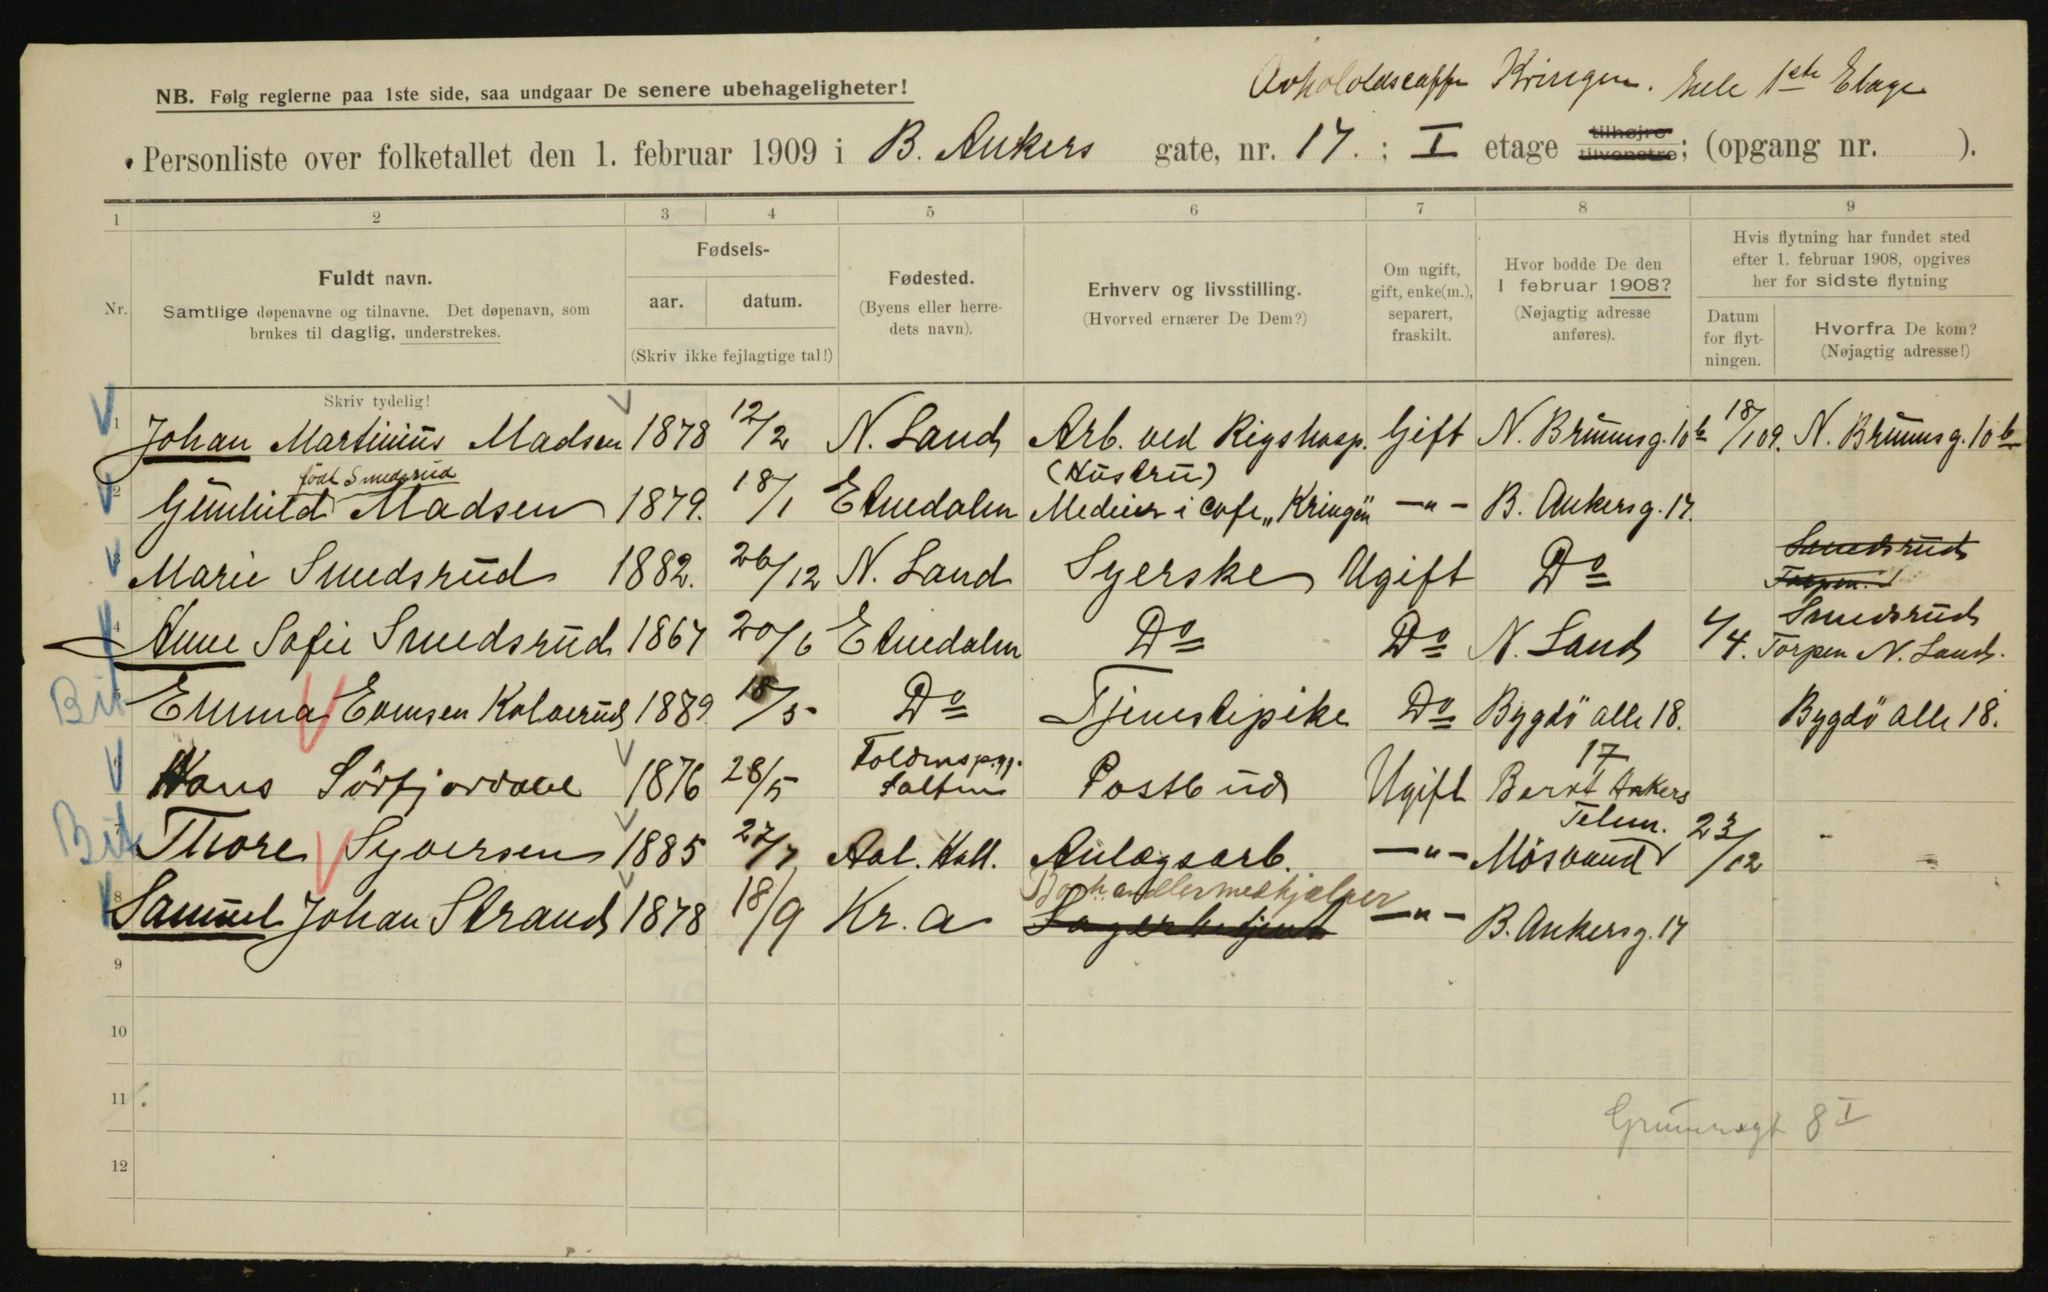 Kringen. Hele 1ste Etage
NB. Følg reglerne paa 1ste side, saa undgaar De senere ubehageligheter!
Personliste over folketallet den 1. februar 1909 i B. Ankers gate, nr. 17. ; I etage tilhøjre tilvenstre; (opgang nr. ).
1 2 3 4 5 6 7 8 9
Nr.
Fuldt navn.
Samtlige døpenavne og tilnavne. Det døpenavn, som
brukes til daglig, understrekes.
Fødsels-
aar. datum.
(Skriv ikke fejlagtige tal!)
Fødested.
(Byens eller herre-
dets navn).
Erhverv og livsstilling.
(Hvorved ernærer De Dem?)
Om ugift,
gift, enke(m.),
separert,
fraskilt.
Hvor bodde De den
1 februar 1908?
(Nøjagtig adresse
anføres).
Hvis flytning har fundet sted
efter 1. februar 1908, opgives
her for sidste flytning
Datum
for flyt-
ningen.
Hvorfra De kom?
(Nøjagtig adresse!)
Skriv tydelig!
1 Johan Martinius Madsen 1878 12/2 N. Land Arb. ved Rigshosp. Gift N. Brunsg. 10 b 18/1 09. N. Brunsg. 10 b
født Smedsrud (Hustru)
2 Gunhild Madsen 1879. 18/1 Etnedalen i Cafe „Kringen" —"— B. Ankersg. 17.
Smedsrud
3 Marie Smedsrud 1882. 26/12 N. Land Syerske Ugift Do Torpen
Smedsrud
4 Anne Sofie Smedsrud 1867 20/6 Etnedalen Do Do N. Land 4/4. Torpen N. Land.
Bit 5 Emma Evensen Kolverud 1889 18/5 Do Tjenestepike Do Bygdö alle 18. Bygdö alle 18.
17
6 Hans Sörfjordahl 1876 28/5 Salten Postbud Ugift Bernt Ankers
Telem.
Bit 7 Thore Syversen 1885 27/7 Aal. Hall. Anlægsarb. —"— Mösvand 23/12 -
Boghandlermedhjælper
8 Samuel Johan Strand 1878 18/9 Kr.a Lagerbetjent —"— B. Ankersg. 17
9
10
11
8 I
12